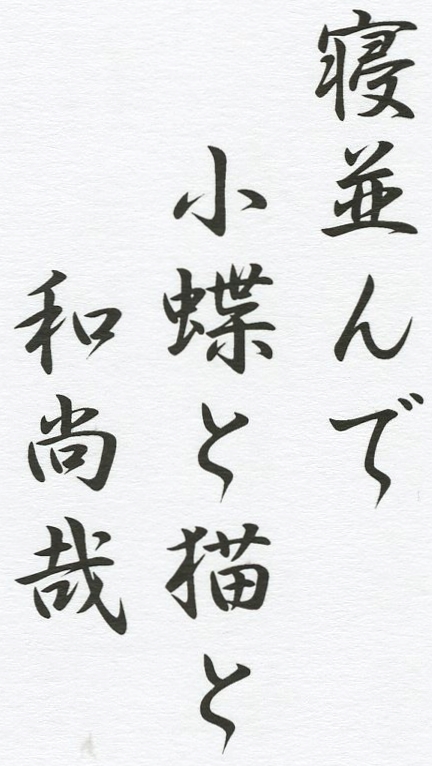 寝並んで
小蝶と猫と
和尚哉